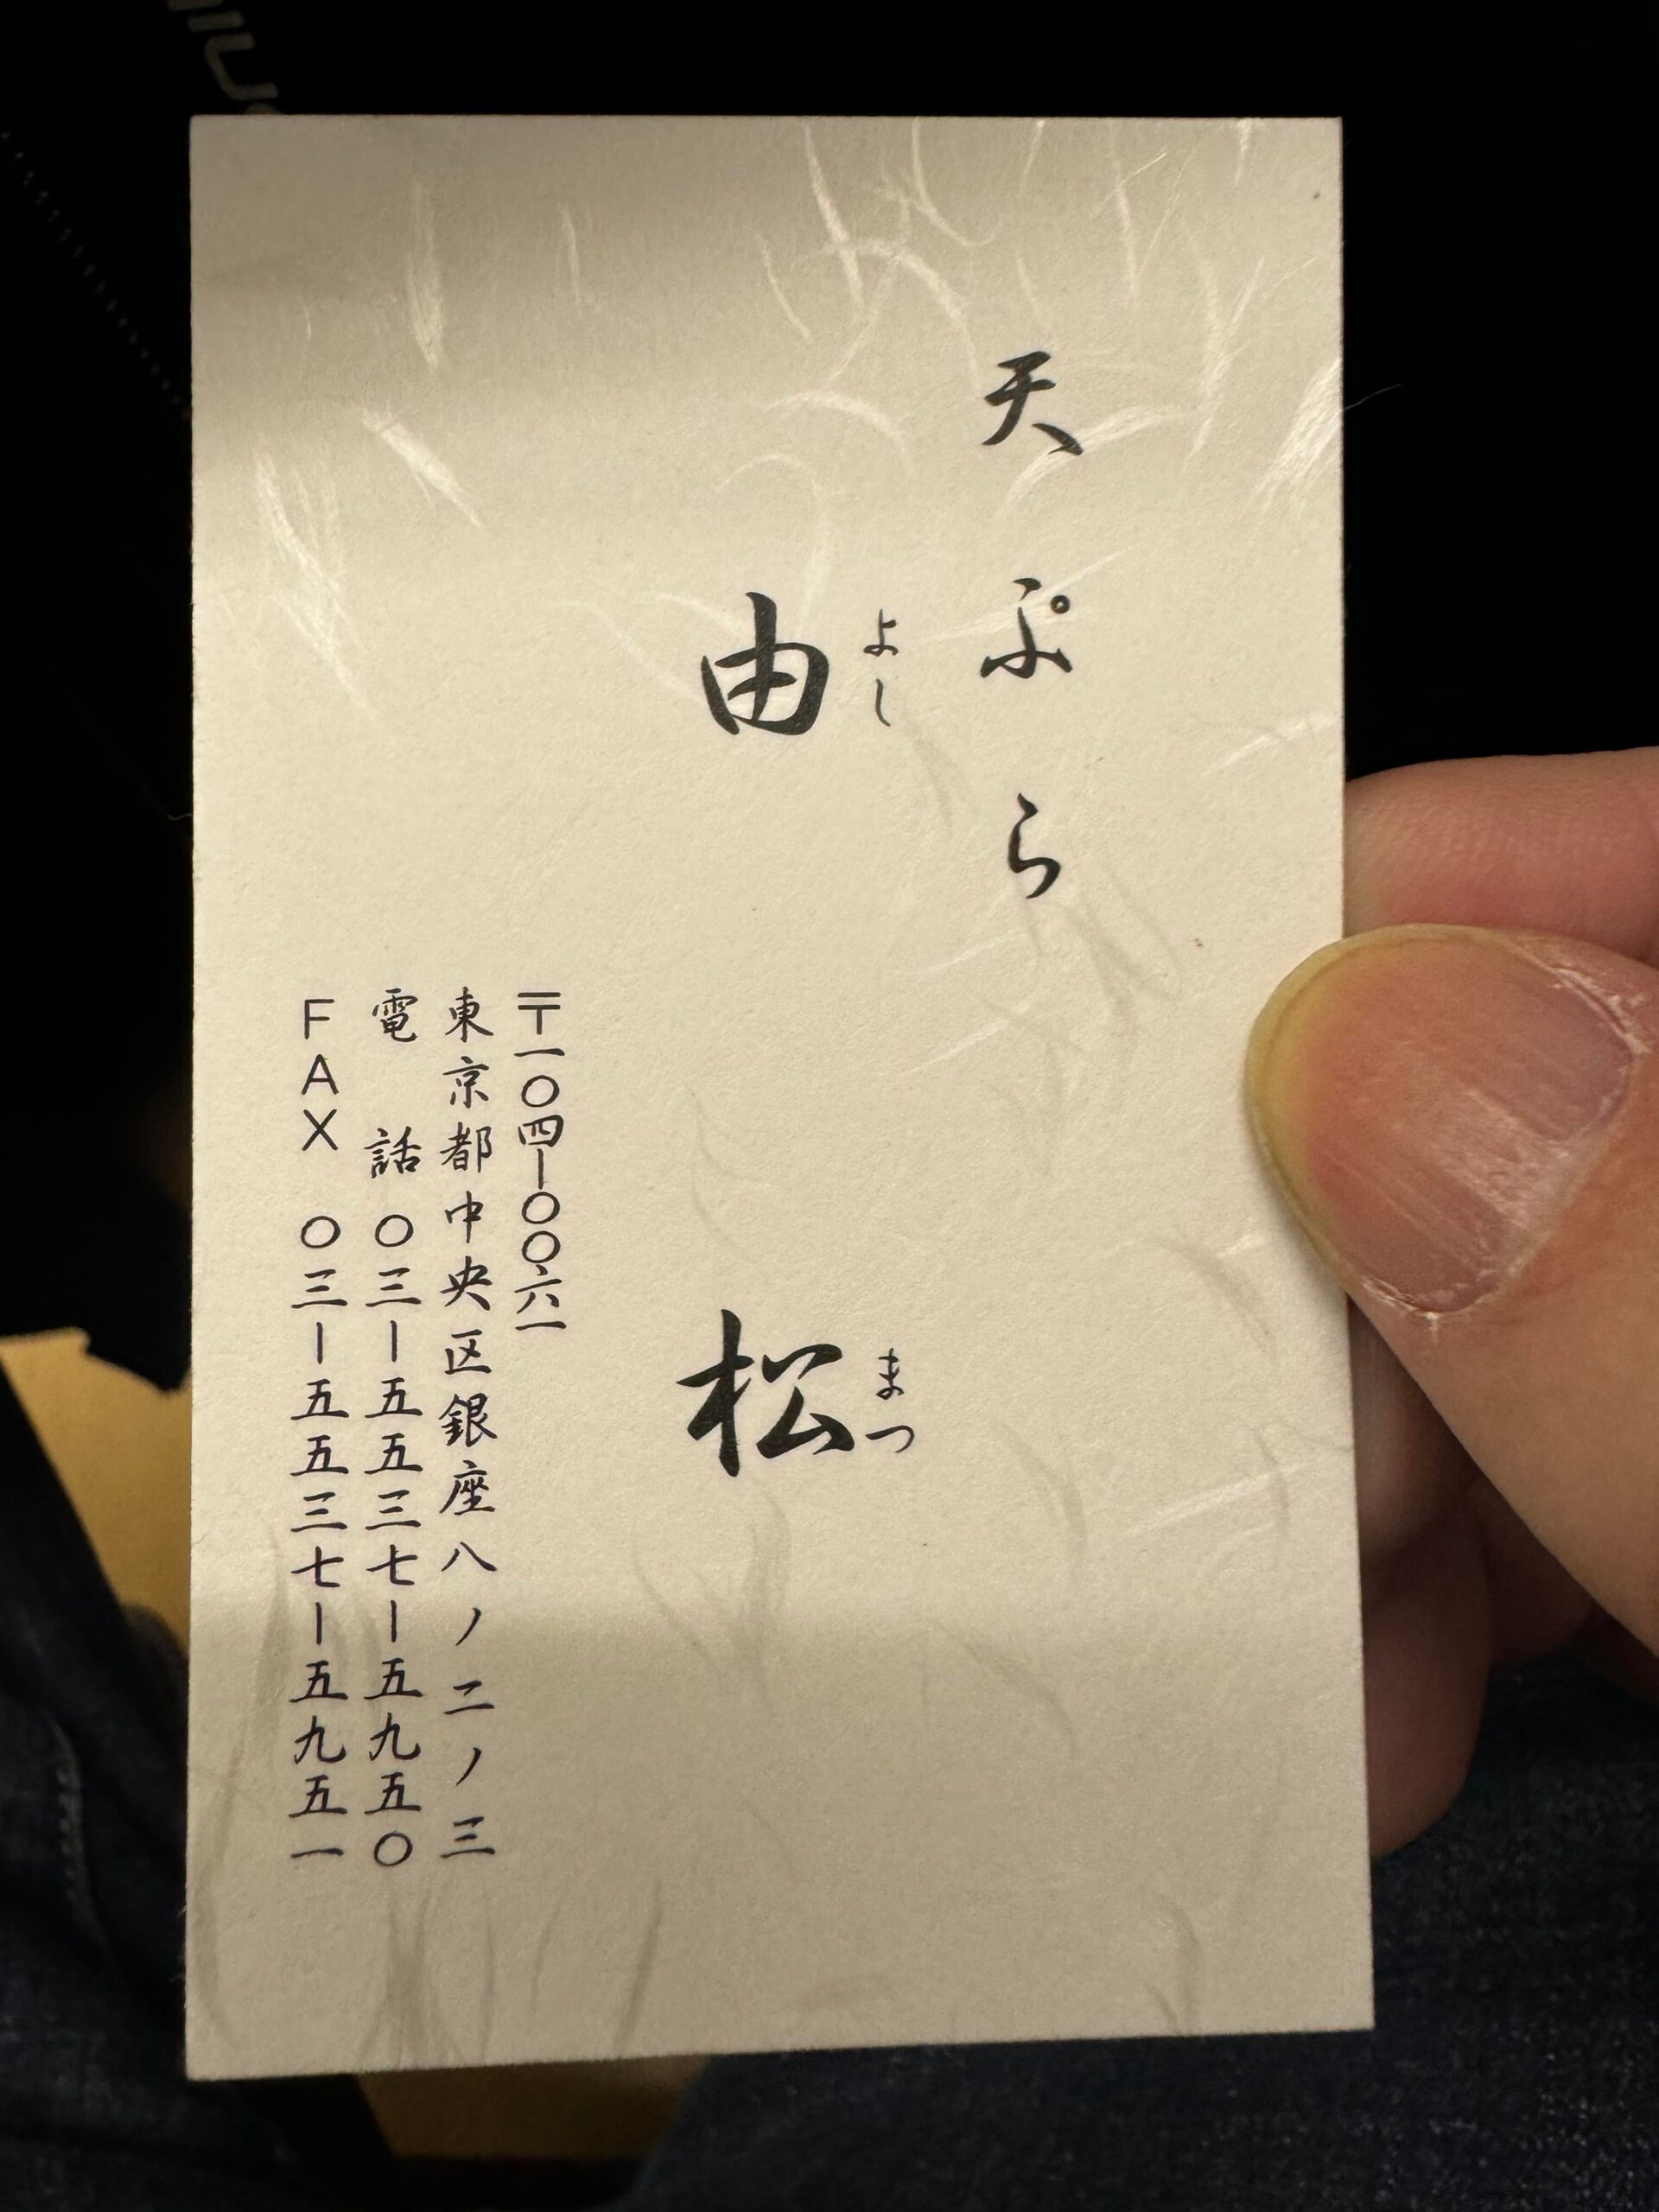 天ぷら
由松
よしまつ
〒一〇四ー〇〇六一
東京都中央区銀座八ノ二ノ三
電話 〇三ー五五三七ー五九五〇
FAX 〇三ー五五三七ー五九五一